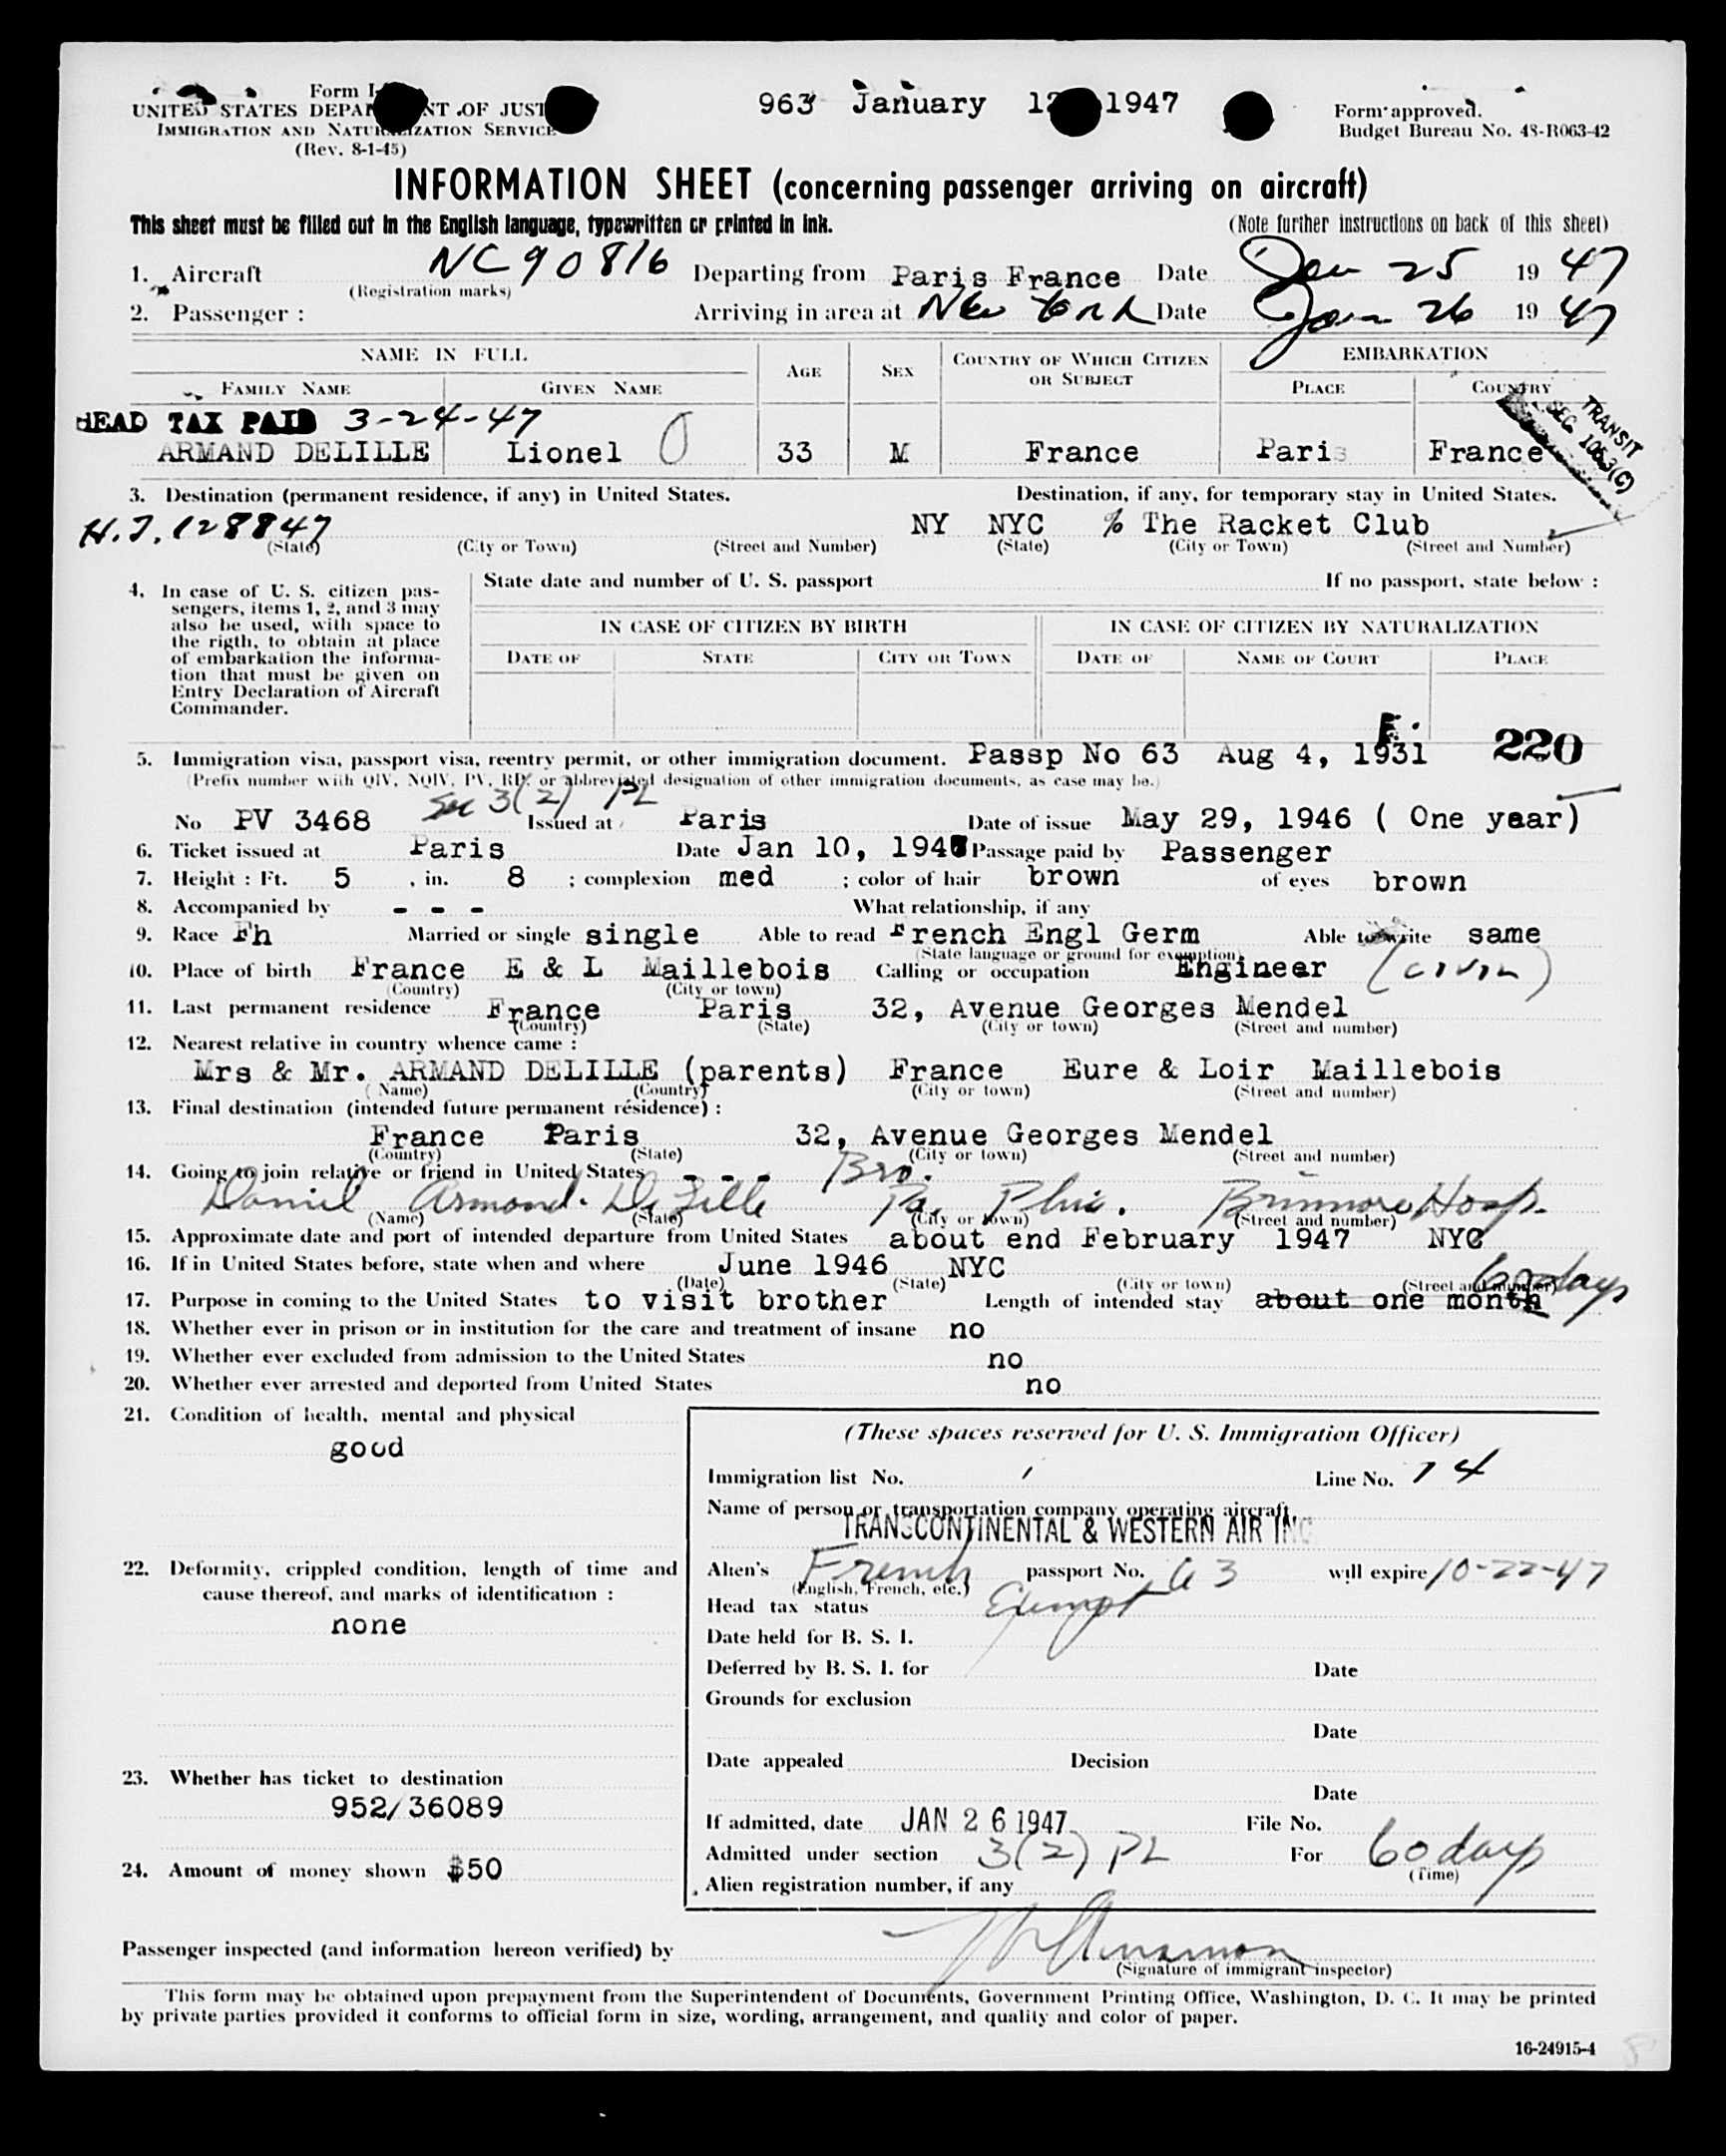 Form I
UNITED STATES DEPA NT OF JUST
963 January 1 1947
Form approved.
IMMIGRATION AND NATURALIZATION SERVICE
Budget Bureau No. 43-R063-42
(Rev. 8-1-45)
INFORMATION SHEET (concerning passenger arriving on aircraft)
This sheet must be filled out in the English language, typewritten or printed in ink.
(Note further instructions on back of this sheet)
1. Aircraft NC 90816 Departing from Paris France Date Jan 25 19 47
(Registration marks)
2. Passenger : Arriving in area at New York Date Jan 26 19 47
NAME IN FULL AGE SEX COUNTRY OF WHICH CITIZEN OR SUBJECT EMBARKATION
FAMILY NAME GIVEN NAME PLACE COUNTRY
HEAD TAX PAID 3-24-47
TRANSIT
SEC 1063(C)
ARMAND DELILLE Lionel 33 M France Paris France
3. Destination (permanent residence, if any) in United States. Destination, if any, for temporary stay in United States.
H.T. 128847 NY NYC % The Racket Club
(State) (City or Town) (Street and Number) (State) (City or Town) (Street and Number)
4. In case of U. S. citizen pas-
sengers, items 1, 2, and 3 may
also be used, with space to
the rigth, to obtain at place
of embarkation the informa-
tion that must be given on
Entry Declaration of Aircraft
Commander.
State date and number of U. S. passport If no passport, state below :
IN CASE OF CITIZEN BY BIRTH IN CASE OF CITIZEN BY NATURALIZATION
DATE OF STATE CITY OR TOWN DATE OF NAME OF COURT PLACE
220
5. Immigration visa, passport visa, reentry permit, or other immigration document. Passp No 63 Aug 4, 1931
(Prefix number with QIV, NQIV, PV, RP, or abbreviated designation of other immigration documents, as case may be.)
Sec 3(2) PL
No PV 3468 Issued at Paris Date of issue May 29, 1946 ( One year)
6. Ticket issued at Paris Date Jan 10, 1947 Passage paid by Passenger
7. Height : Ft. 5 , in. 8 ; complexion med ; color of hair brown of eyes brown
8. Accompanied by - - - What relationship, if any
9. Race Fh Married or single single Able to read French Engl Germ Able to write same
(State language or ground for exemption)
10. Place of birth France E & L Maillebois Calling or occupation Engineer (civil)
(Country) (City or town)
11. Last permanent residence France Paris 32, Avenue Georges Mendel
(Country) (State) (City or town) (Street and number)
12. Nearest relative in country whence came :
Mrs & Mr. ARMAND DELILLE (parents) France Eure & Loir Maillebois
(Name) (Country) (City or town) (Street and number)
13. Final destination (intended future permanent résidence) :
France Paris 32, Avenue Georges Mendel
(Country) (State) (City or town) (Street and number)
14. Going to join relative or friend in United States - - - Bro.
Daniel Armand. DeLille Pa, Phia. Brinmore Hosp.
(Name) (State) (City or town) (Street and number)
15. Approximate date and port of intended departure from United States about end February 1947 NYC
16. If in United States before, state when and where June 1946 NYC
(Date) (State) (City or town) (Street and number)
60 days
17. Purpose in coming to the United States to visit brother Length of intended stay about one month
18. Whether ever in prison or in institution for the care and treatment of insane no
19. Whether ever excluded from admission to the United States no
20. Whether ever arrested and deported from United States no
21. Condition of health, mental and physical
good
(These spaces reserved for U. S. Immigration Officer)
Immigration list No. 1 Line No. 14
Name of person or transportation company operating aircraft.
TRANSCONTINENTAL & WESTERN AIR INC
22. Deformity, crippled condition, length of time and
cause thereof, and marks of identification :
none
Alien's French passport No. 63 will expire 10-22-47
(English, French, etc.)
Head tax status Exempt
Date held for B. S. I.
Deferred by B. S. I. for Date
Grounds for exclusion
Date
Date appealed Decision
Date
23. Whether has ticket to destination
952/36089
If admitted, date JAN 26 1947 File No.
Admitted under section 3(2) PL For 60 days
(Time)
24. Amount of money shown $50
Alien registration number, if any
Passenger inspected (and information hereon verified) by
(Signature of immigrant inspector)
This form may be obtained upon prepayment from the Superintendent of Documents, Government Printing Office, Washington, D. C. It may be printed
by private parties provided it conforms to official form in size, wording, arrangement, and quality and color of paper.
16-24915-4